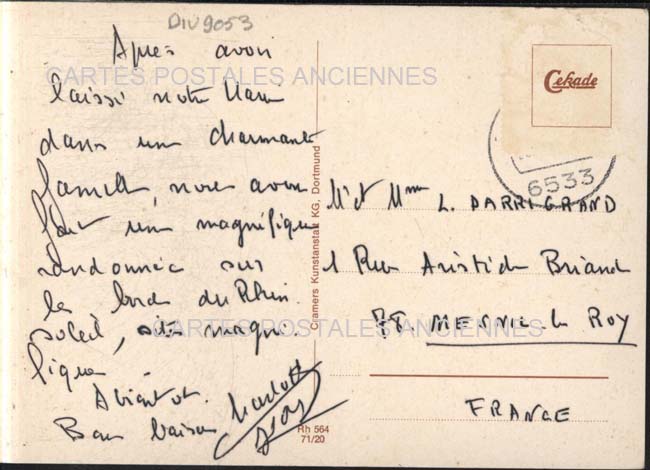 DIV9053
Après avoir
laissé notre
dans une charmante
famille, nous avons
fait une magnifique
randonnée sur
les bords du Rhin.
soleil, sites magni
fiques.
A bientôt.
Bons baisers
Cekade
6533
Mr et Mme L. DARRIGRAND
1 Rue Aristide Briand
78. MESNIL-le Roy
FRANCE
Cramers Kunstanstalt KG, Dortmund
Rh 564
71/20
CARTES POSTALES ANCIENNES
CARTES POSTALES ANCIENNES